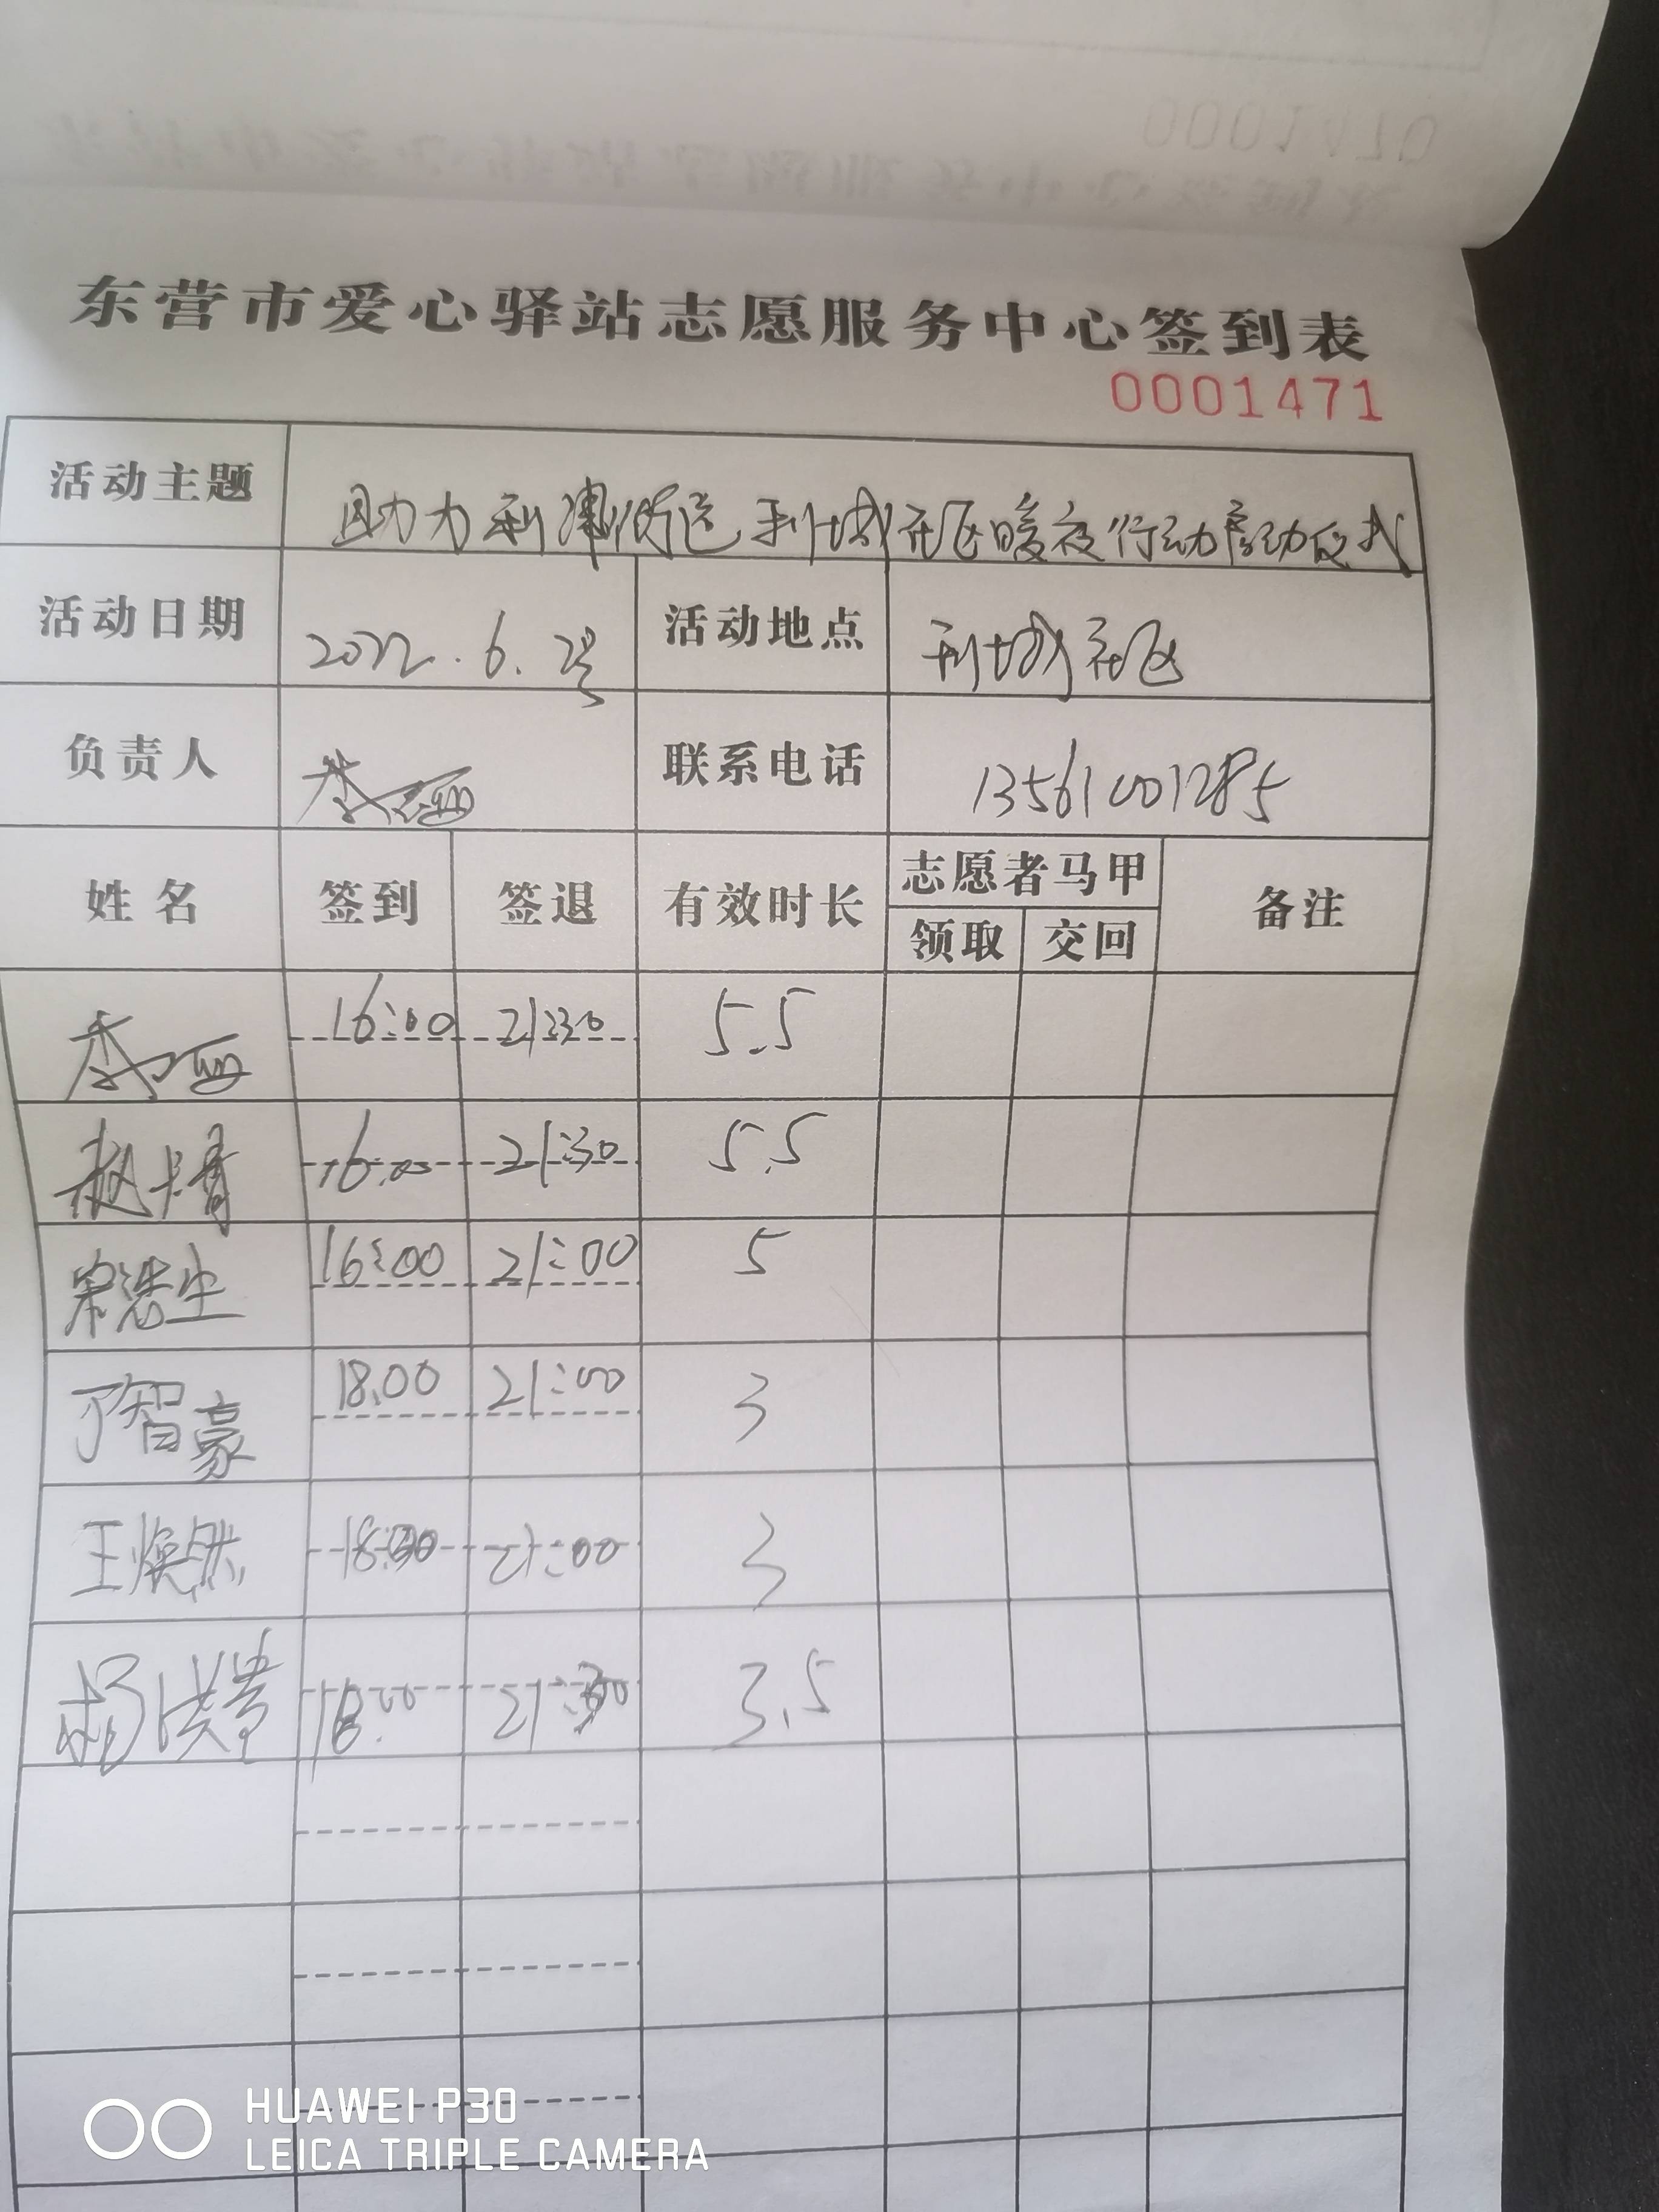 0001470
东营市爱心驿站志愿服务中心签到表
0001471
活动主题 助力利津街道利城社区暖夜行动启动仪式
活动日期 2022.6.2号 活动地点 利城社区
负责人 联系电话 13561001285
姓名 签到 签退 有效时长 志愿者马甲 备注
领取 交回
16:00 21:30 5.5
赵 16:00 21:30 5.5
宋浩生 16:00 21:00 5
丁智豪 18.00 21:00 3
王焕然 18:00 21:00 3
杨洪贵 18:00 21:30 3.5
HUAWEI P30
LEICA TRIPLE CAMERA